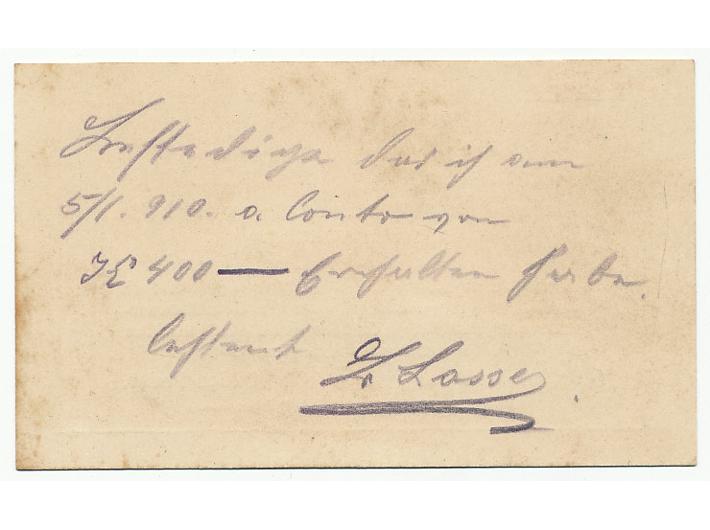 Bestedige das ich am
5/1. 910. a Conto von
K 400 — Erhalten habe.
Lasser